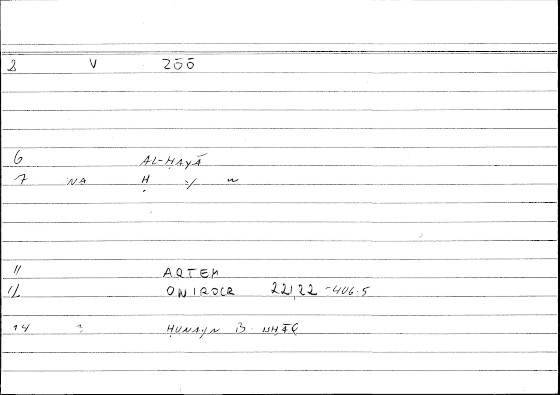 2 V ZŌŌ
6 AL-ḤAYĀ
7 NA Ḥ Y W
11 ARTEM
12 ONIROCR 22,22 -406.5
14 ḤUNAYN B.